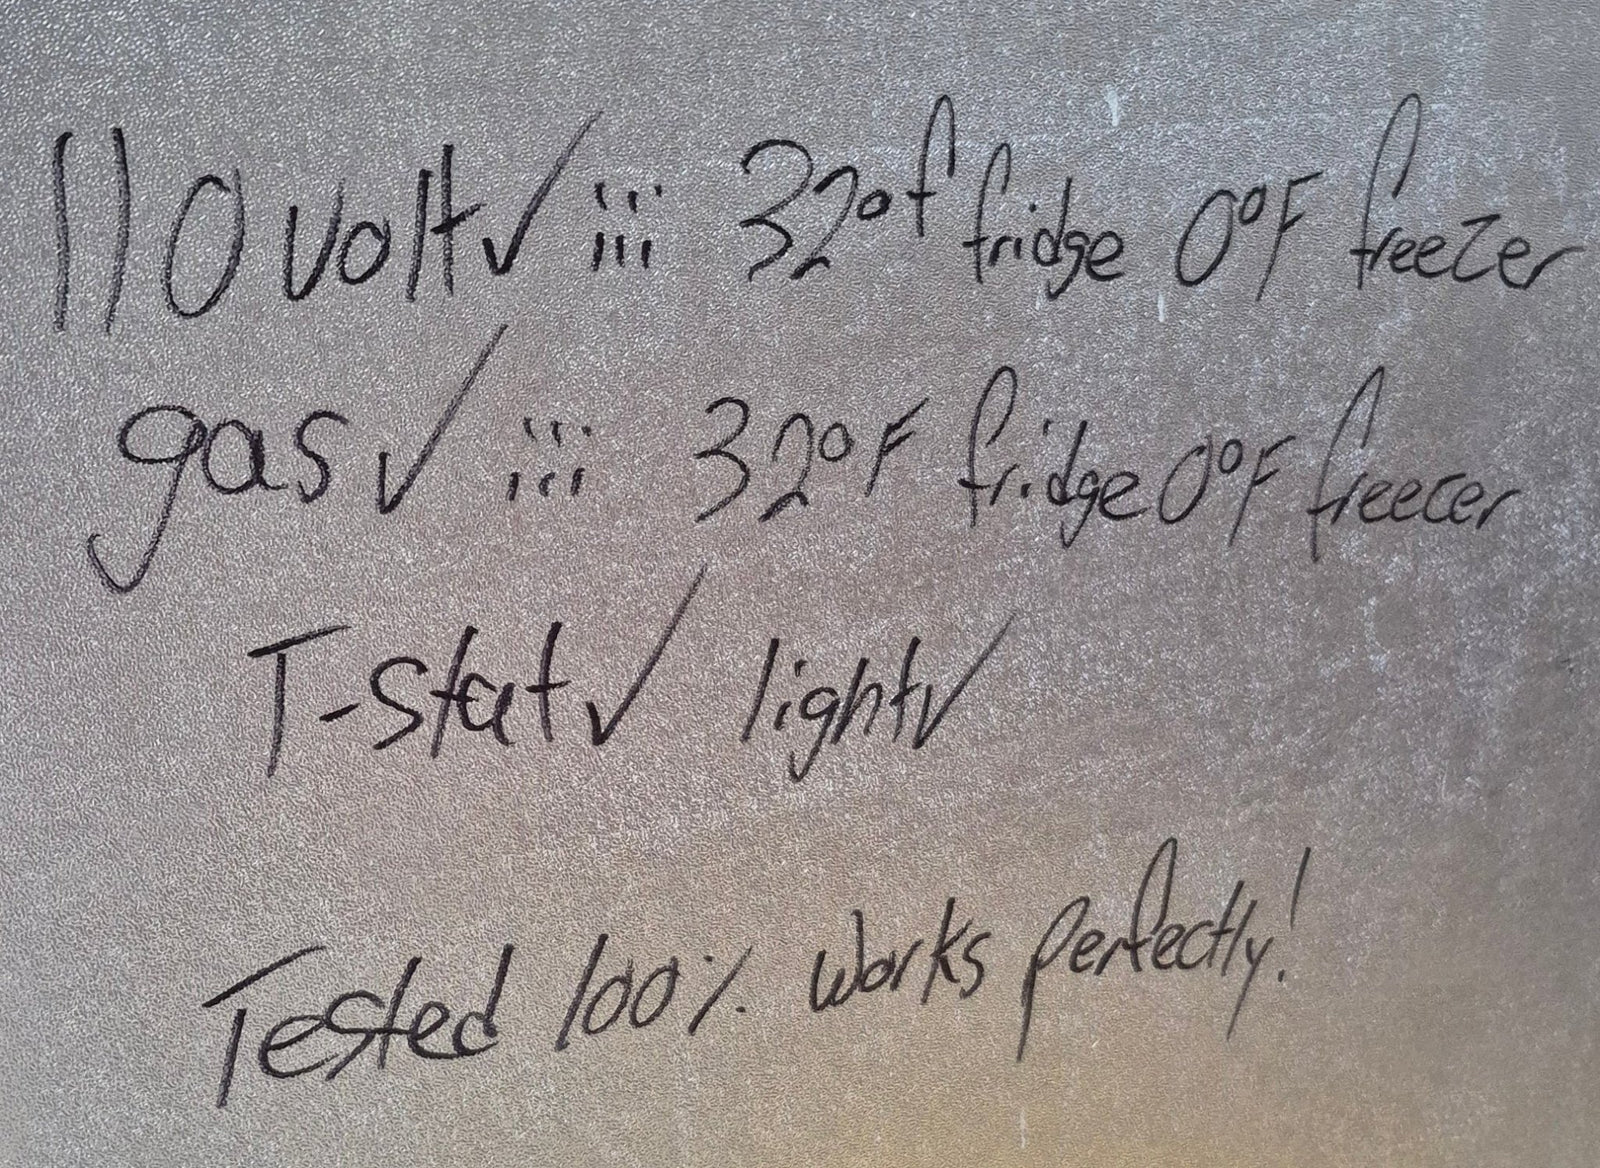 110 volt✓ ⋮⋮⋮ 32°f fridge 0°F freezer
gas✓ ⋮⋮⋮ 32°F fridge 0°F freezer
T-stat✓ light✓
Tested 100% works perfectly!